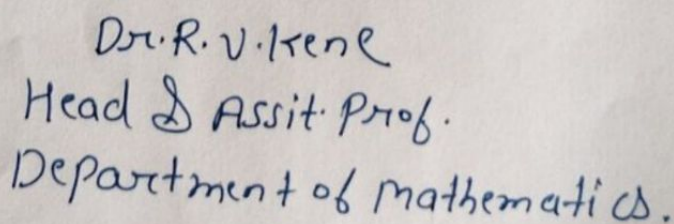 Dr. R. V. Kene
Head & Assit. Prof.
Department of Mathematics.